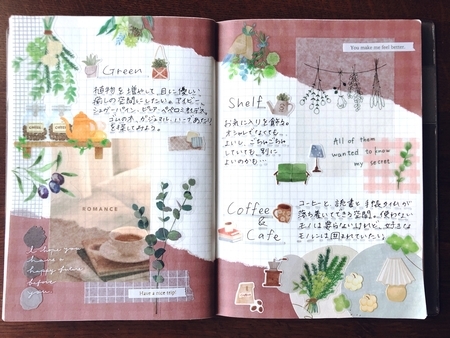 Green
植物を増やして、目に優しい
癒しの空間にしたい。アイビー、
シュガーバイン、ペペロミア
ゴムの木、ガジュマル、
を探してみよう。
ROMANCE
I hope you
have a
happy future
before
you.
Have a nice trip!
You make me feel better.
Shelf
お気に入りを飾る。
オシャレでなくても、
よいし、ごちゃごちゃ
していても、別に
よいのかも…
All of them
wanted to know
my secret
Coffee
&
Cafe
コーヒーと、読書と手帳タイムが
落ち着いてできる空間。使わない
モノは要らないけれど、好きな
モノには囲まれていたい。